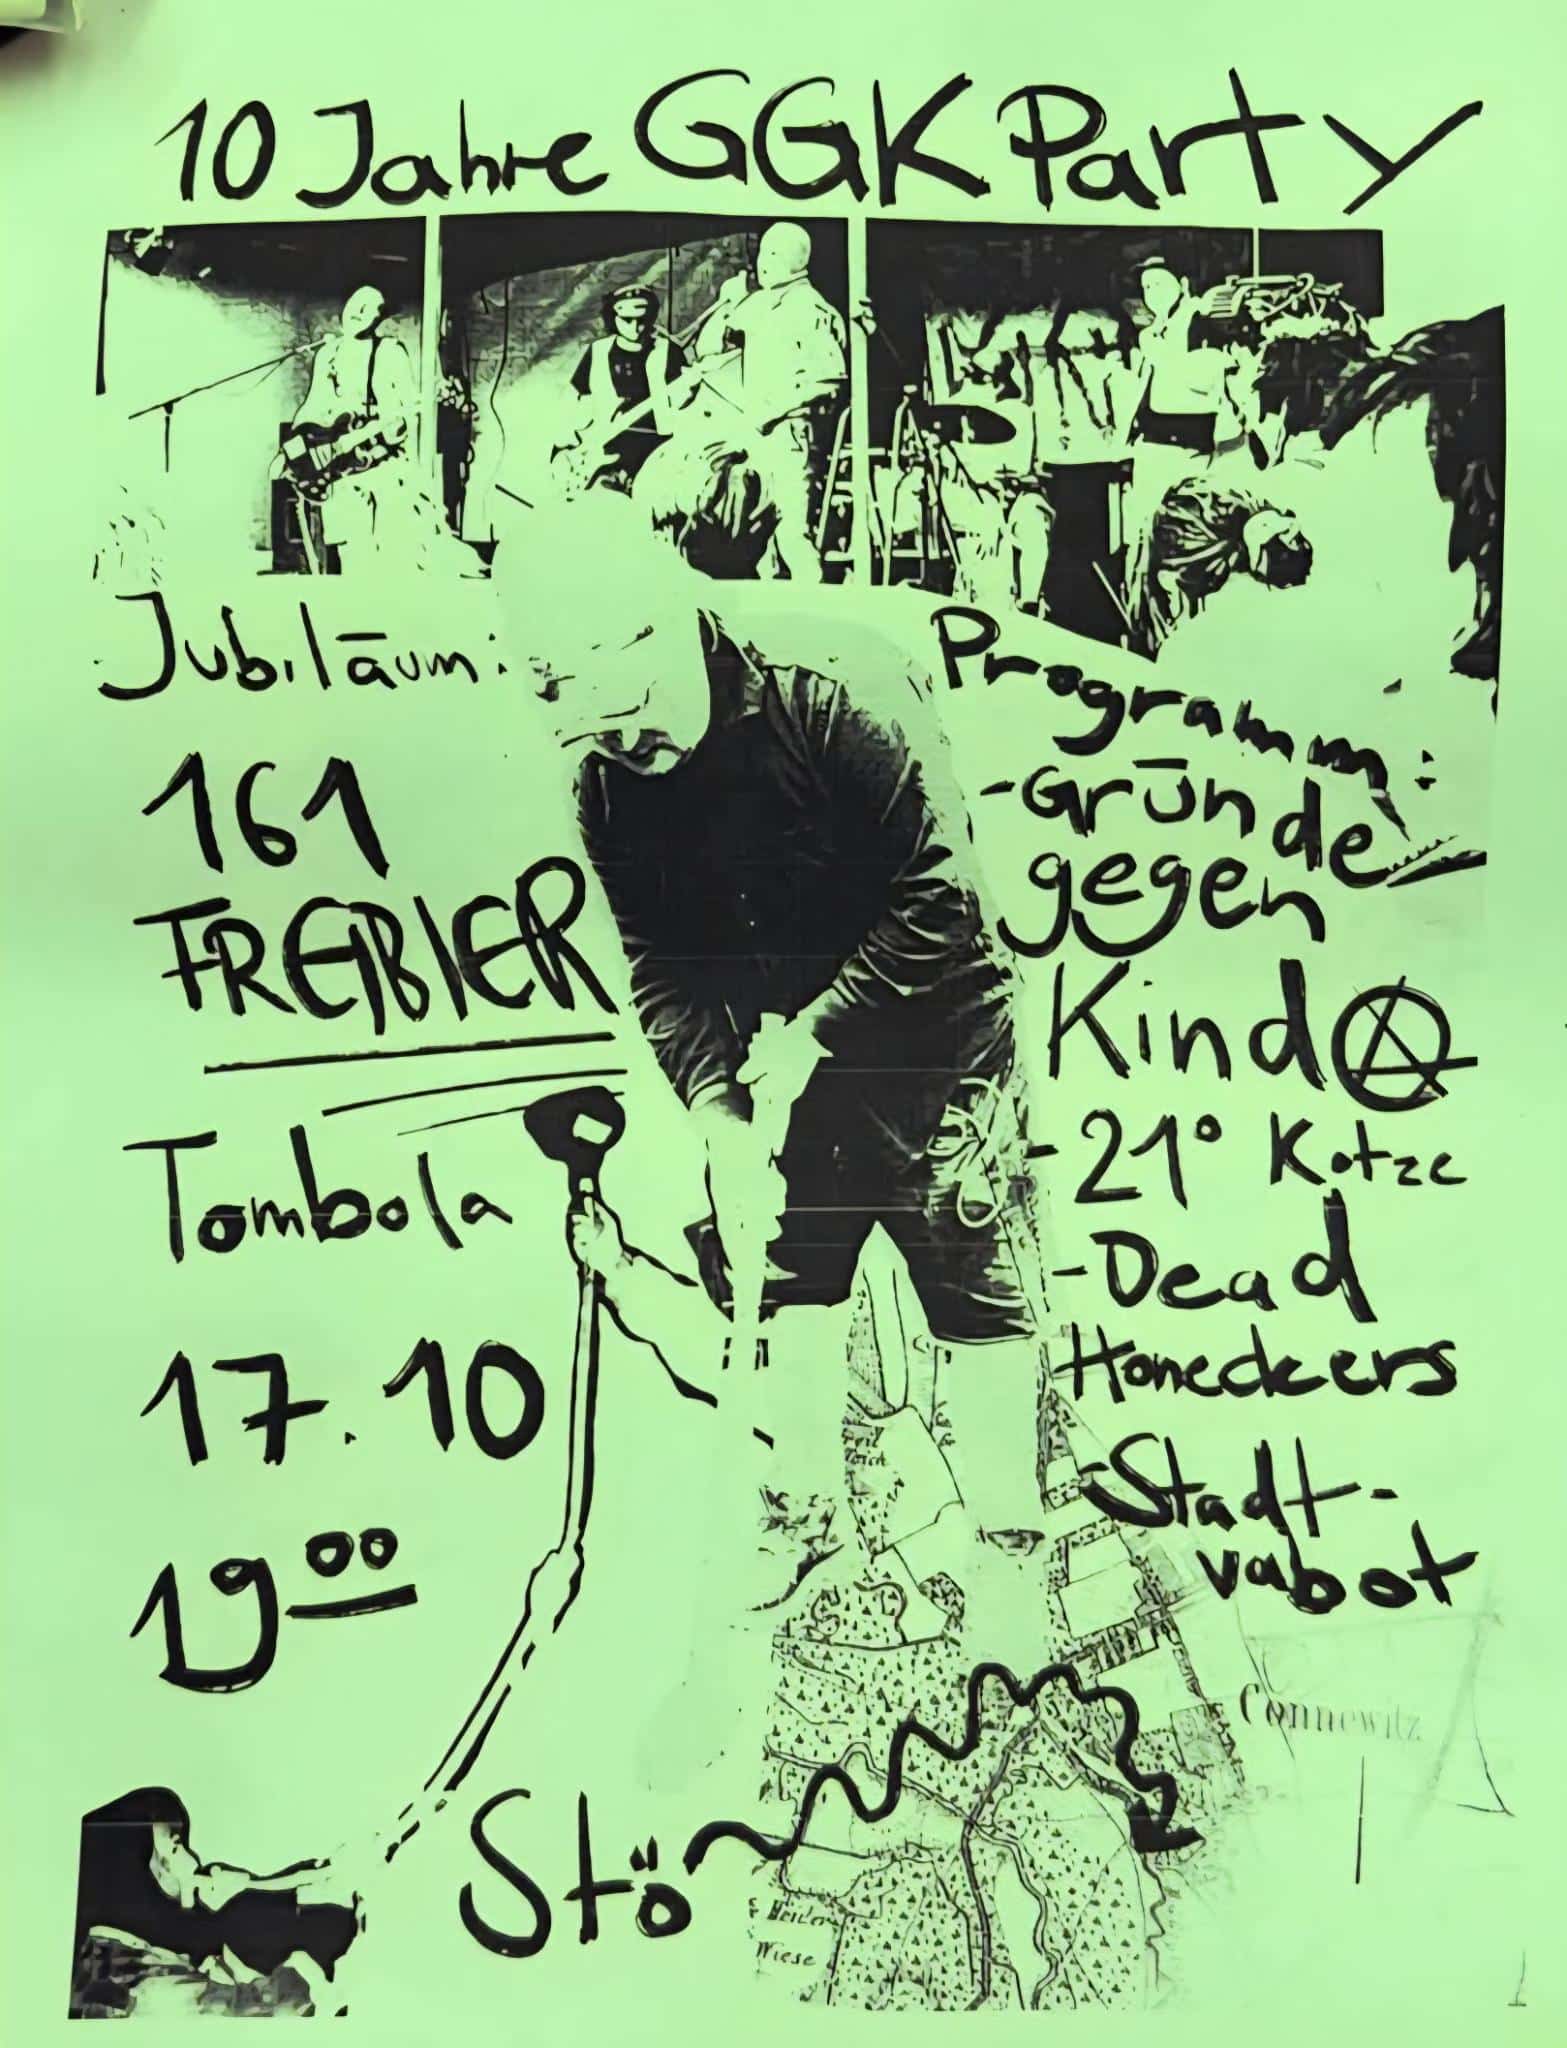 10 Jahre GGK Party
Jubiläum:
161
FREIBIER
Tombola
17.10
19⁰⁰
Programm:
-Gründe
gegen
Kind Ⓐ
-21° Kotze
-Dead
Honeckers
-Stadt-
vabot
Stö
Connewitz
Heider
Wiese